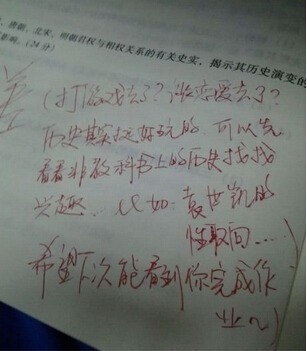 唐朝、北宋、明朝君权与相权关系的有关史实，揭示其历史演变的
影响。(24分)
差
(打游戏去了？谈恋爱去了？
历史其实挺好玩的，可以先
看看非教科书上的历史找找
兴趣…比如：袁世凯的
性取向…)
希望下次能看到你完成作
业~)